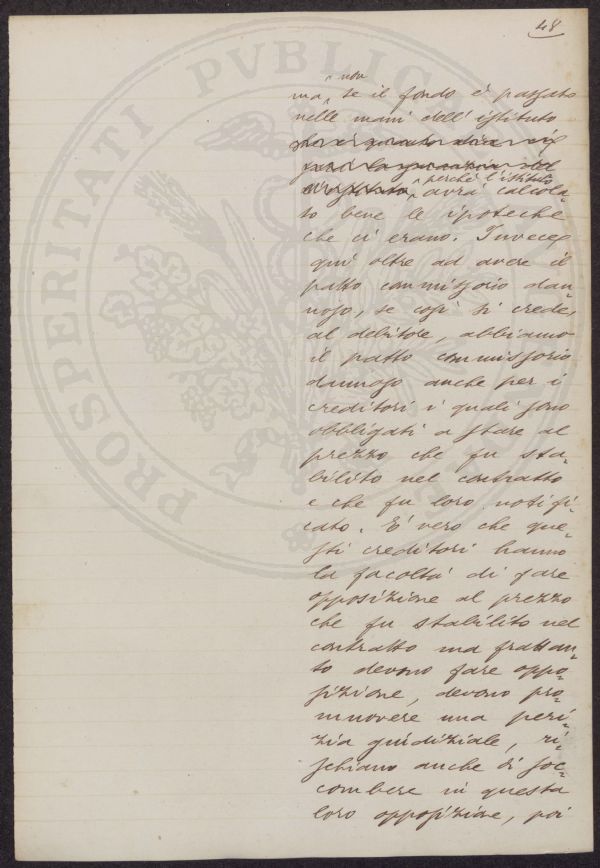 48
non
ma, se il fondo è passato
nelle mani dell'istituto
perchè l'istituto
avrà calcola-
to bene le ipoteche
che ci erano. Invece
qui oltre ad avere il
patto commissorio dan-
noso, se così si crede,
al debitore, abbiamo
il patto commissorio
dannoso anche per i
creditori i quali sono
obbligati a stare al
prezzo che fu sta-
bilito nel contratto
e che fu loro notifi-
cato. E' vero che que-
sti creditori hanno
la facoltà di fare
opposizione al prezzo
che fu stabilito nel
contratto ma frattan-
to devono fare oppo-
sizione, devono pro-
muovere una peri-
zia giudiziale, ri-
schiano anche di soc-
combere in questa
loro opposizione, poi
PROSPERITATI PVBLICAE